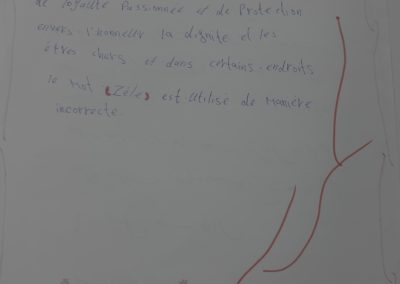 de loyauté Passionnée et de Protection
envers l'honneur la dignité et les
êtres chers et dans certains endroits
le mot (Zèle) est utilisé de manière
incorrecte.